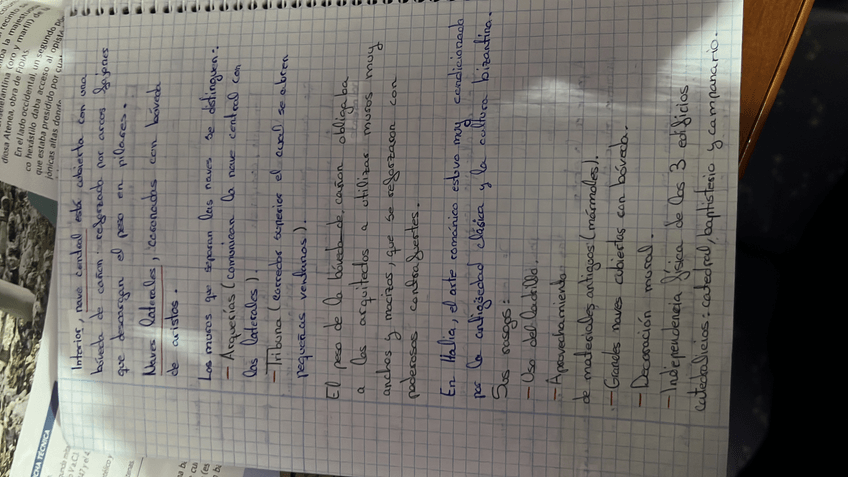 Interior, nave central está cubierta con una
bóveda de cañon reforzada por arcos fajones
que descargan el peso en pilares.
Naves laterales, coronadas con bóveda
de aristas.
Los muros que separan las naves se distinguen:
- Arquerías (comunican la nave central con
las laterales).
- Tribuna (corredor superior el cual se abren
pequeñas ventanas).
El peso de la bóveda de cañon obligaba
a los arquitectos a utilizar muros muy
anchos y macizos, que se reforzaron con
poderosos contrafuertes.
En Italia, el arte románico estuvo muy condicionado
por la antigüedad clásica y la cultura bizantina.
Sus rasgos:
- Uso del ladrillo.
- Aprovechamiento
de materiales antiguos (mármoles).
- Grandes naves cubiertas con bóveda.
- Decoración mural.
- Independencia física de los 3 edificios
catedalicios: catedral, baptisterio y campanario.
diosa Atenea, obra de FIDIAS
En el lado occidental, un segundo
co hexástilo daba acceso al opist
que estaba presidido por
jónicas altas
CHA TÉCNICA